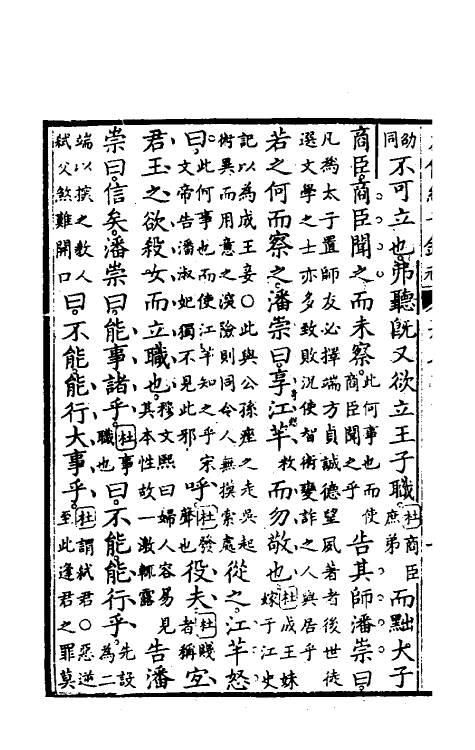 同不可立也弗聽既又欲立王子職杜商臣庶弟而黜大子
商臣商臣聞之而未察此何事也而使商臣聞之乎告其師潘崇曰
凡為太子置師友必擇端方貞誠德望風著者後世徒
選文學之士亦多致敗況使智術變詐之人與居乎
若之何而察之潘崇曰享江芊教而勿敬也杜成王妹嫁于江史
記以為成王妾○此與公孫痤之走吳起
術異而用意之深險則同令人無摸索處從之江芊怒
曰此何事也而使江芊知之乎宋文帝告潘淑妃獨不見此邪呼杜發聲也役夫杜賤者稱宜
君王之欲殺女而立職也穆文熙曰婦人容易見其本性故一激輒露告潘
崇曰信矣潘崇曰能事諸乎杜事職也曰不能能行乎先設為二
端以探之教人弒父煞難開口曰不能能行大事乎杜謂弒君○惡逆至此逢君之罪莫